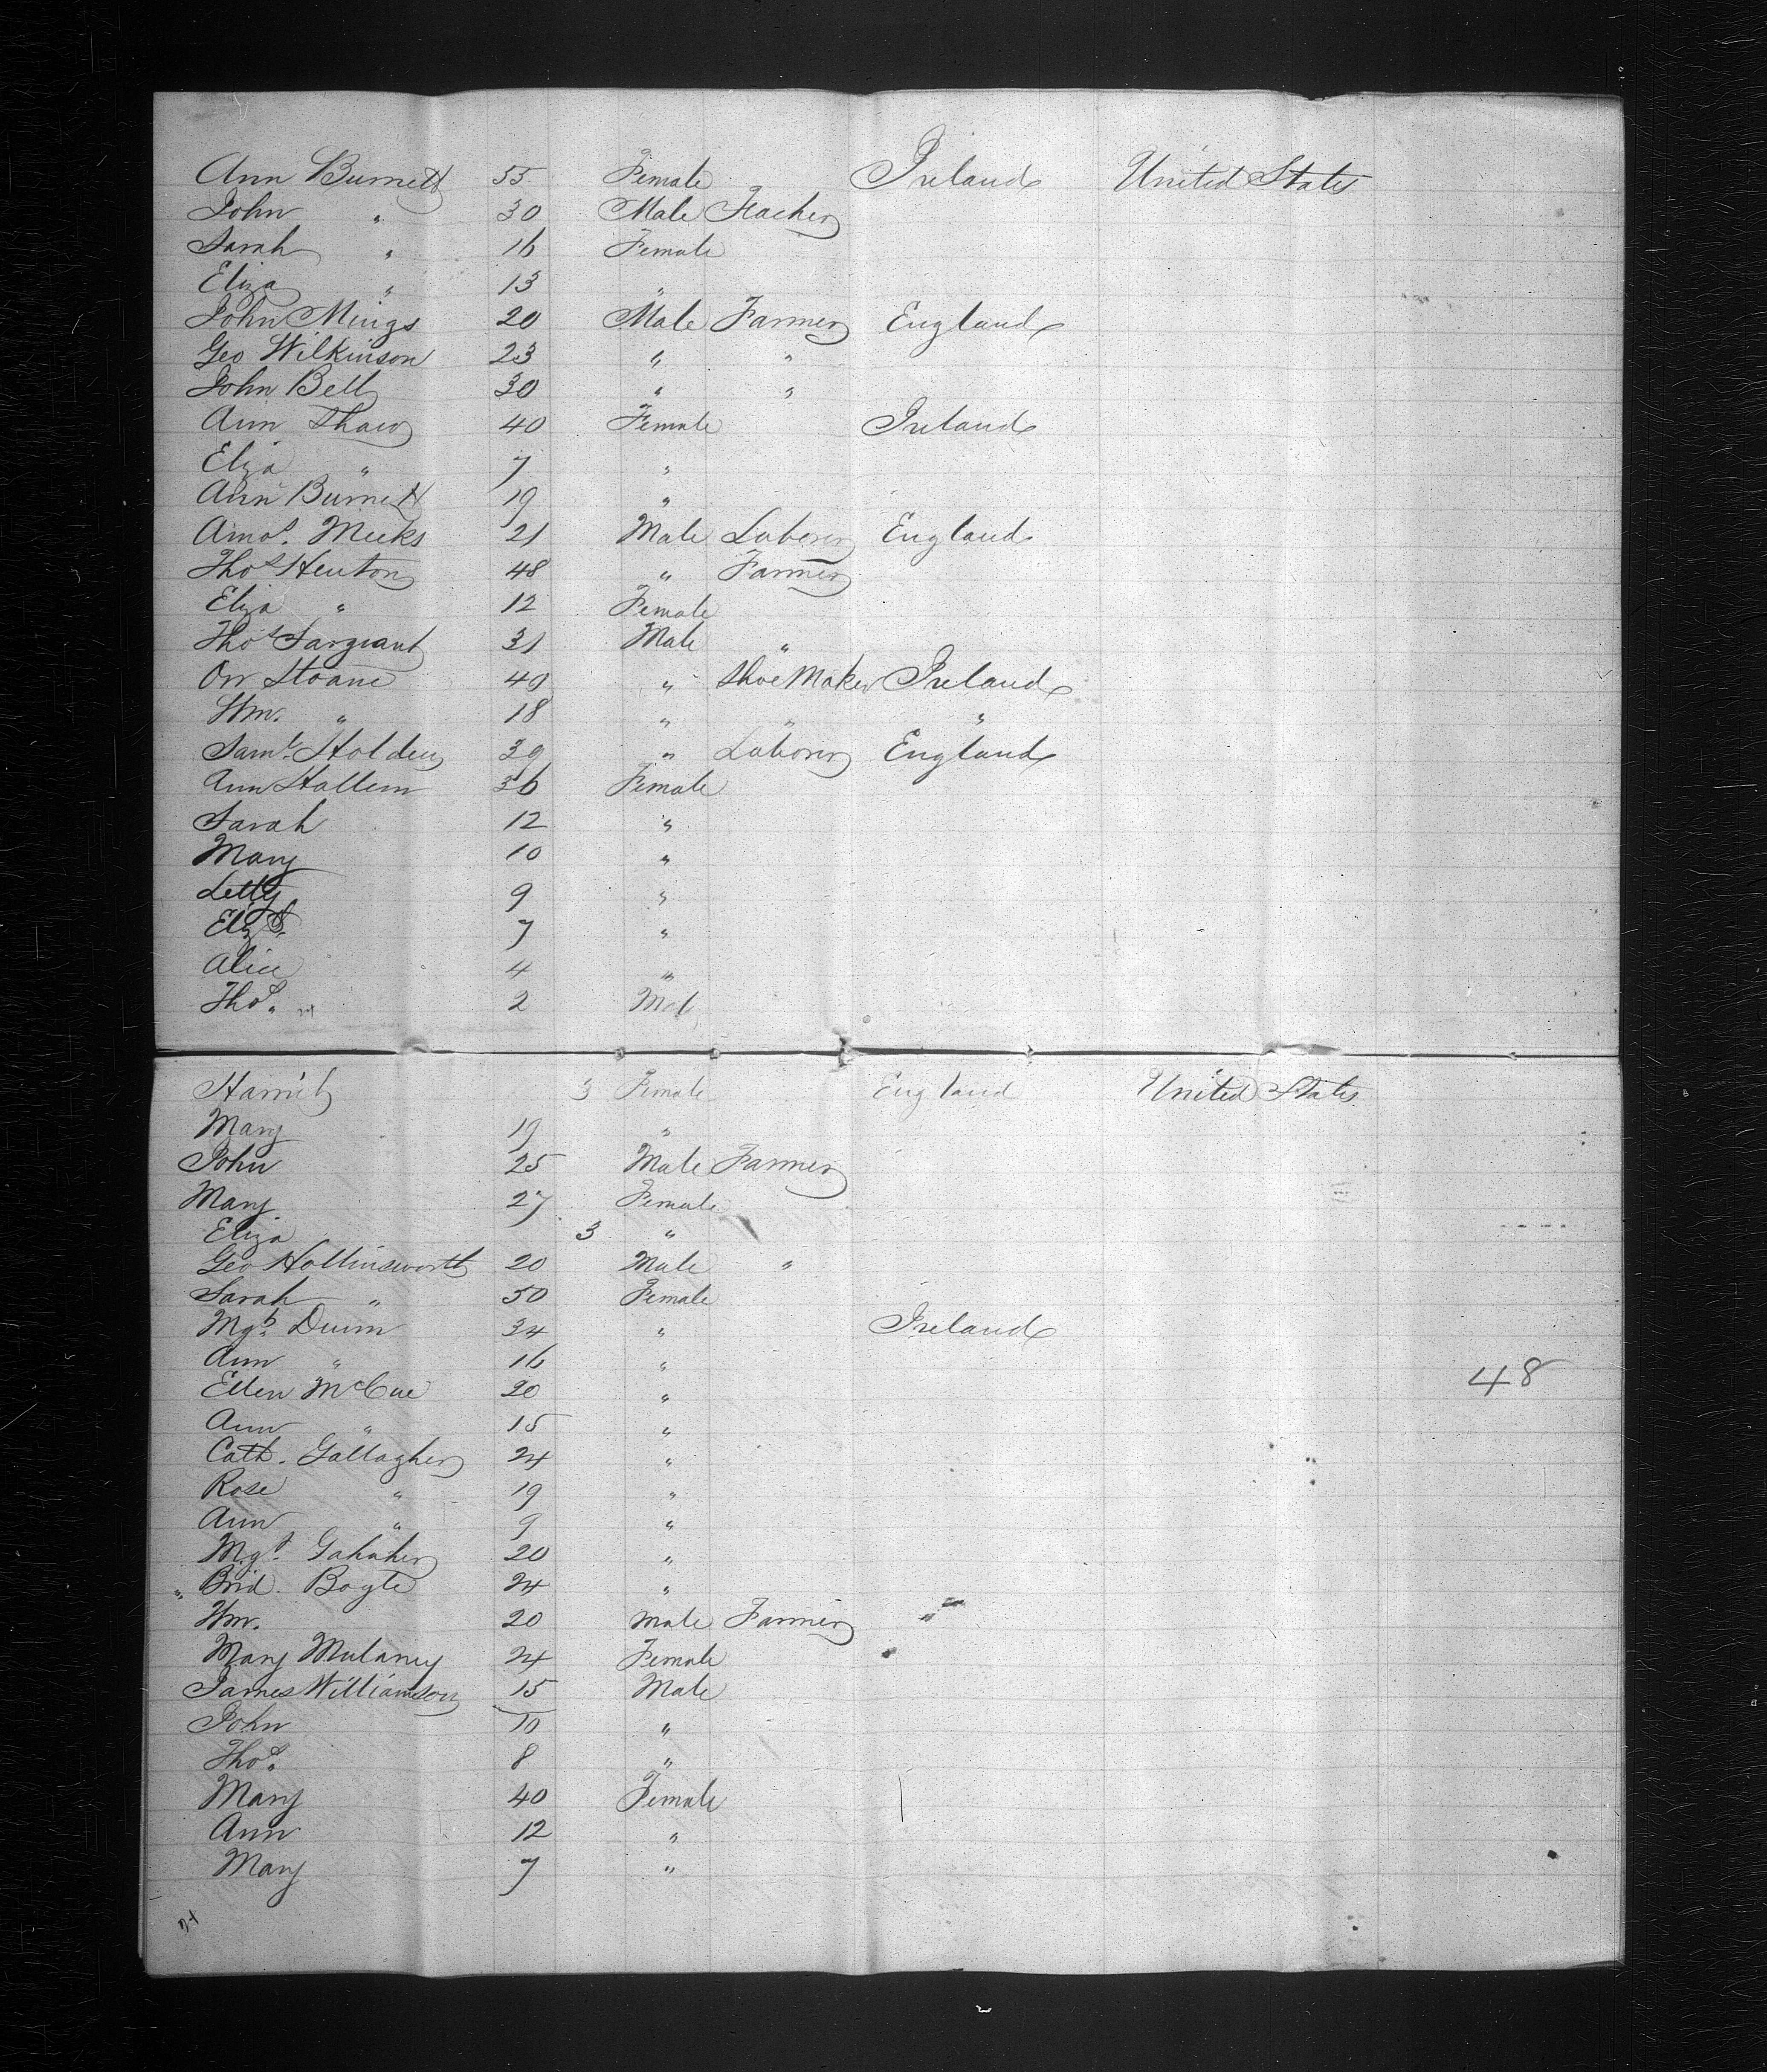 Ann Burnett 55 Female Ireland United States
John " 30 Male Teacher
Sarah " 16 Female
Eliza " 13 "
John Mings 20 Male Farmer England
Geo Wilkinson 23 " "
John Bell 30 " "
Ann Shaw 40 Female Ireland
Eliza " 7 "
Ann Burnett 19 "
Amos. Meeks 21 Male Laborer England
Thos Heuton 48 " Farmer
Eliza " 12 Female
Thos Sargeant 31 Male "
Orr Sloane 49 " Shoe Maker Ireland
Wm. " 18 " " "
Saml. Holden 39 " Laborer England
Ann Hallem 36 Female
Sarah 12 "
Mary 10 "
Letty 9 "
Elizth. 7 "
Alice 4 "
Thos. 2 Male
Harriet 3 Female England United States
Mary 19 "
John 25 Male Farmer
Mary 27 Female
Eliza 3 "
Geo Hollinsworth 20 Male "
Sarah " 50 Female
Mgt. Dunn 34 " Ireland
Ann " 16 "
Ellen McCue 20 "
48
Ann " 15 "
Cath. Gallagher 24 "
Rose " 19 "
Ann " 9 "
Mgt. Gahaher 20 "
" Brid. Boyle 24 "
Wm. 20 Male Farmer "
Mary Mulaney 24 Female
James Williamson 15 Male
John 10 "
Thos. 8 "
Mary 40 Female
Ann 12 "
Mary 7 "
24